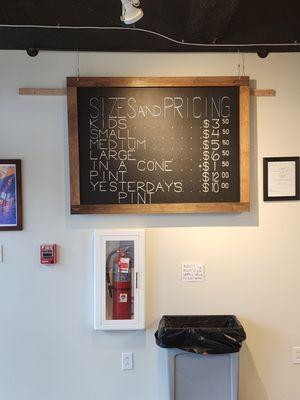 SIZES AND PRICING
KIDS . . . . . . . . $3.50
SMALL . . . . . . . $4.50
MEDIUM . . . . . . $5.50
LARGE . . . . . . . $6.50
IN A CONE . . . . +$1.50
PINT . . . . . . . . $12.00
YESTERDAY'S . . . $10.00
PINT